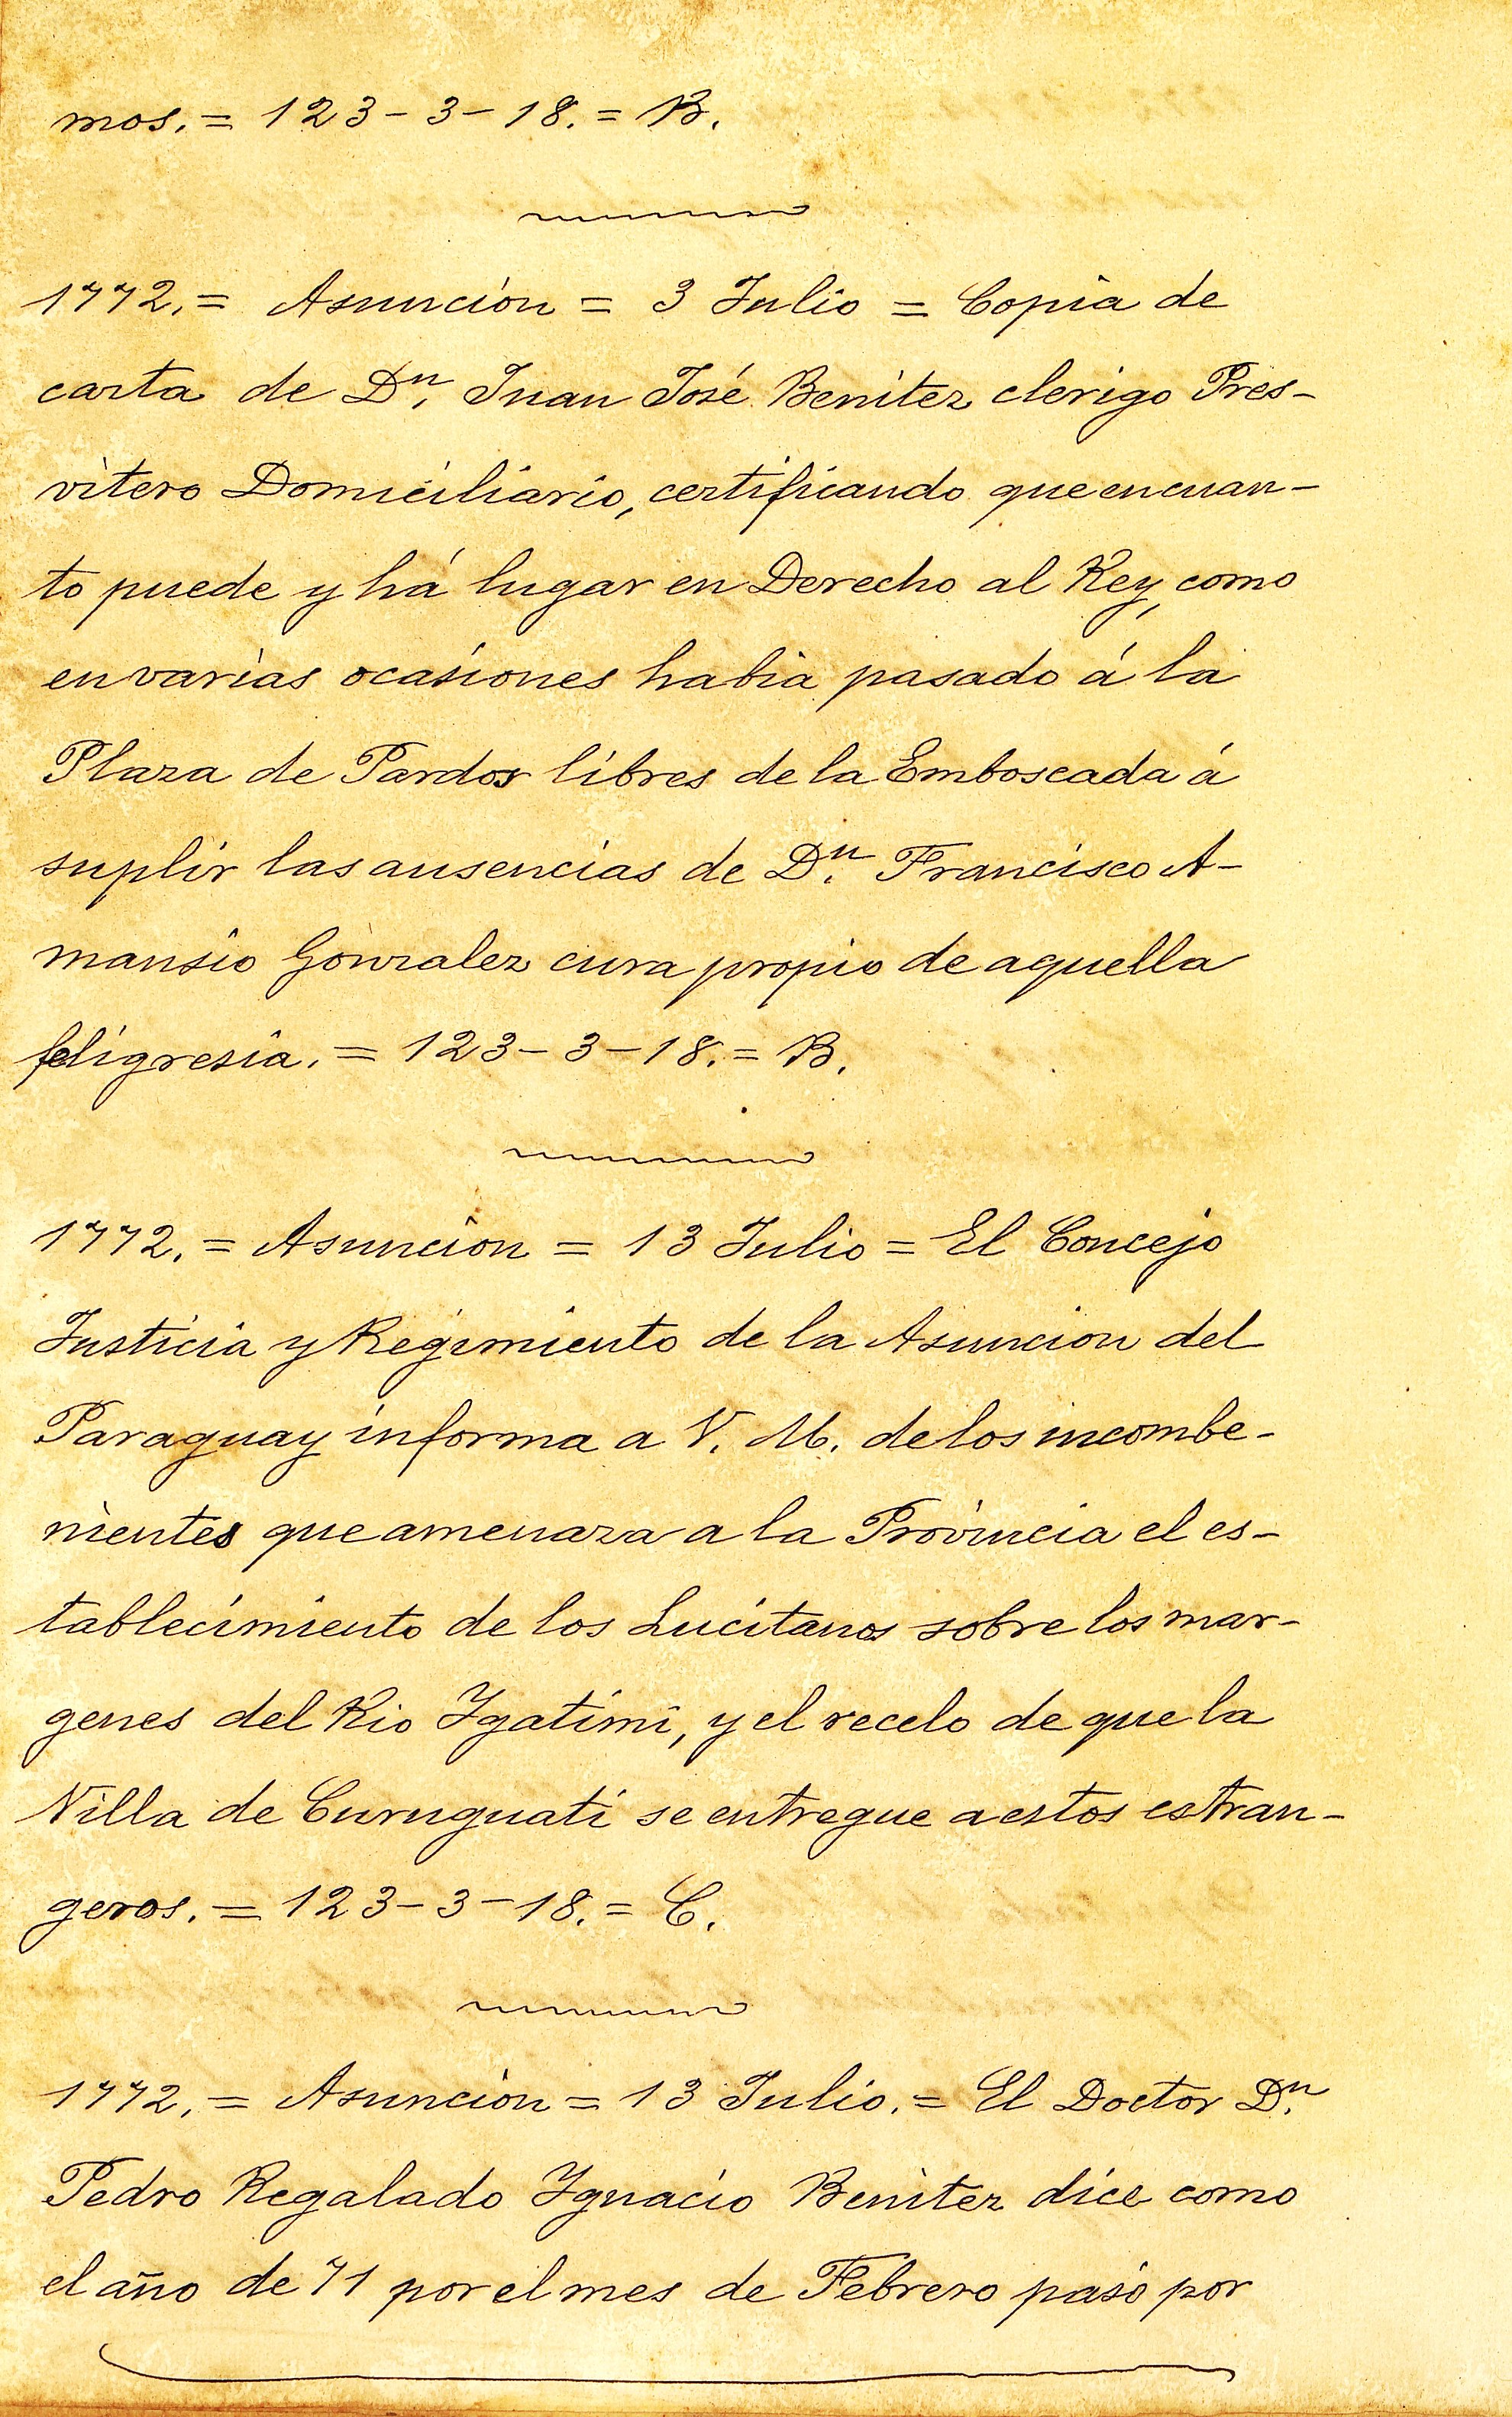 mos. = 123-3-18. = B.
1772. = Asuncion = 3 Julio = Copia de
carta de Dⁿ. Juan José Benitez clerigo Pres-
vitero Domiciliario, certificando que en cuan-
to puede y há lugar en Derecho al Rey, como
en varias ocasiones habia pasado á la
Plaza de Pardos libres de la Emboscada á
suplir las ausencias de Dⁿ. Francisco A-
mansio Gonzalez cura propio de aquella
feligresia. = 123-3-18. = B.
1772. = Asuncion = 13 Julio = El Concejo
Justicia y Regimiento de la Asuncion del
Paraguay informa a V. M. de los incombe-
nientes que amenaza a la Provincia el es-
tablecimiento de los Lucitanos sobre los mar-
genes del Rio Igatimi, y el recelo de que la
Villa de Curuguati se entregue a estos estran-
geros. = 123-3-18. = C.
1772. = Asuncion = 13 Julio. = El Doctor Dⁿ.
Pedro Regalado Ignacio Benitez dice como
el año de 71 por el mes de Febrero pasó por